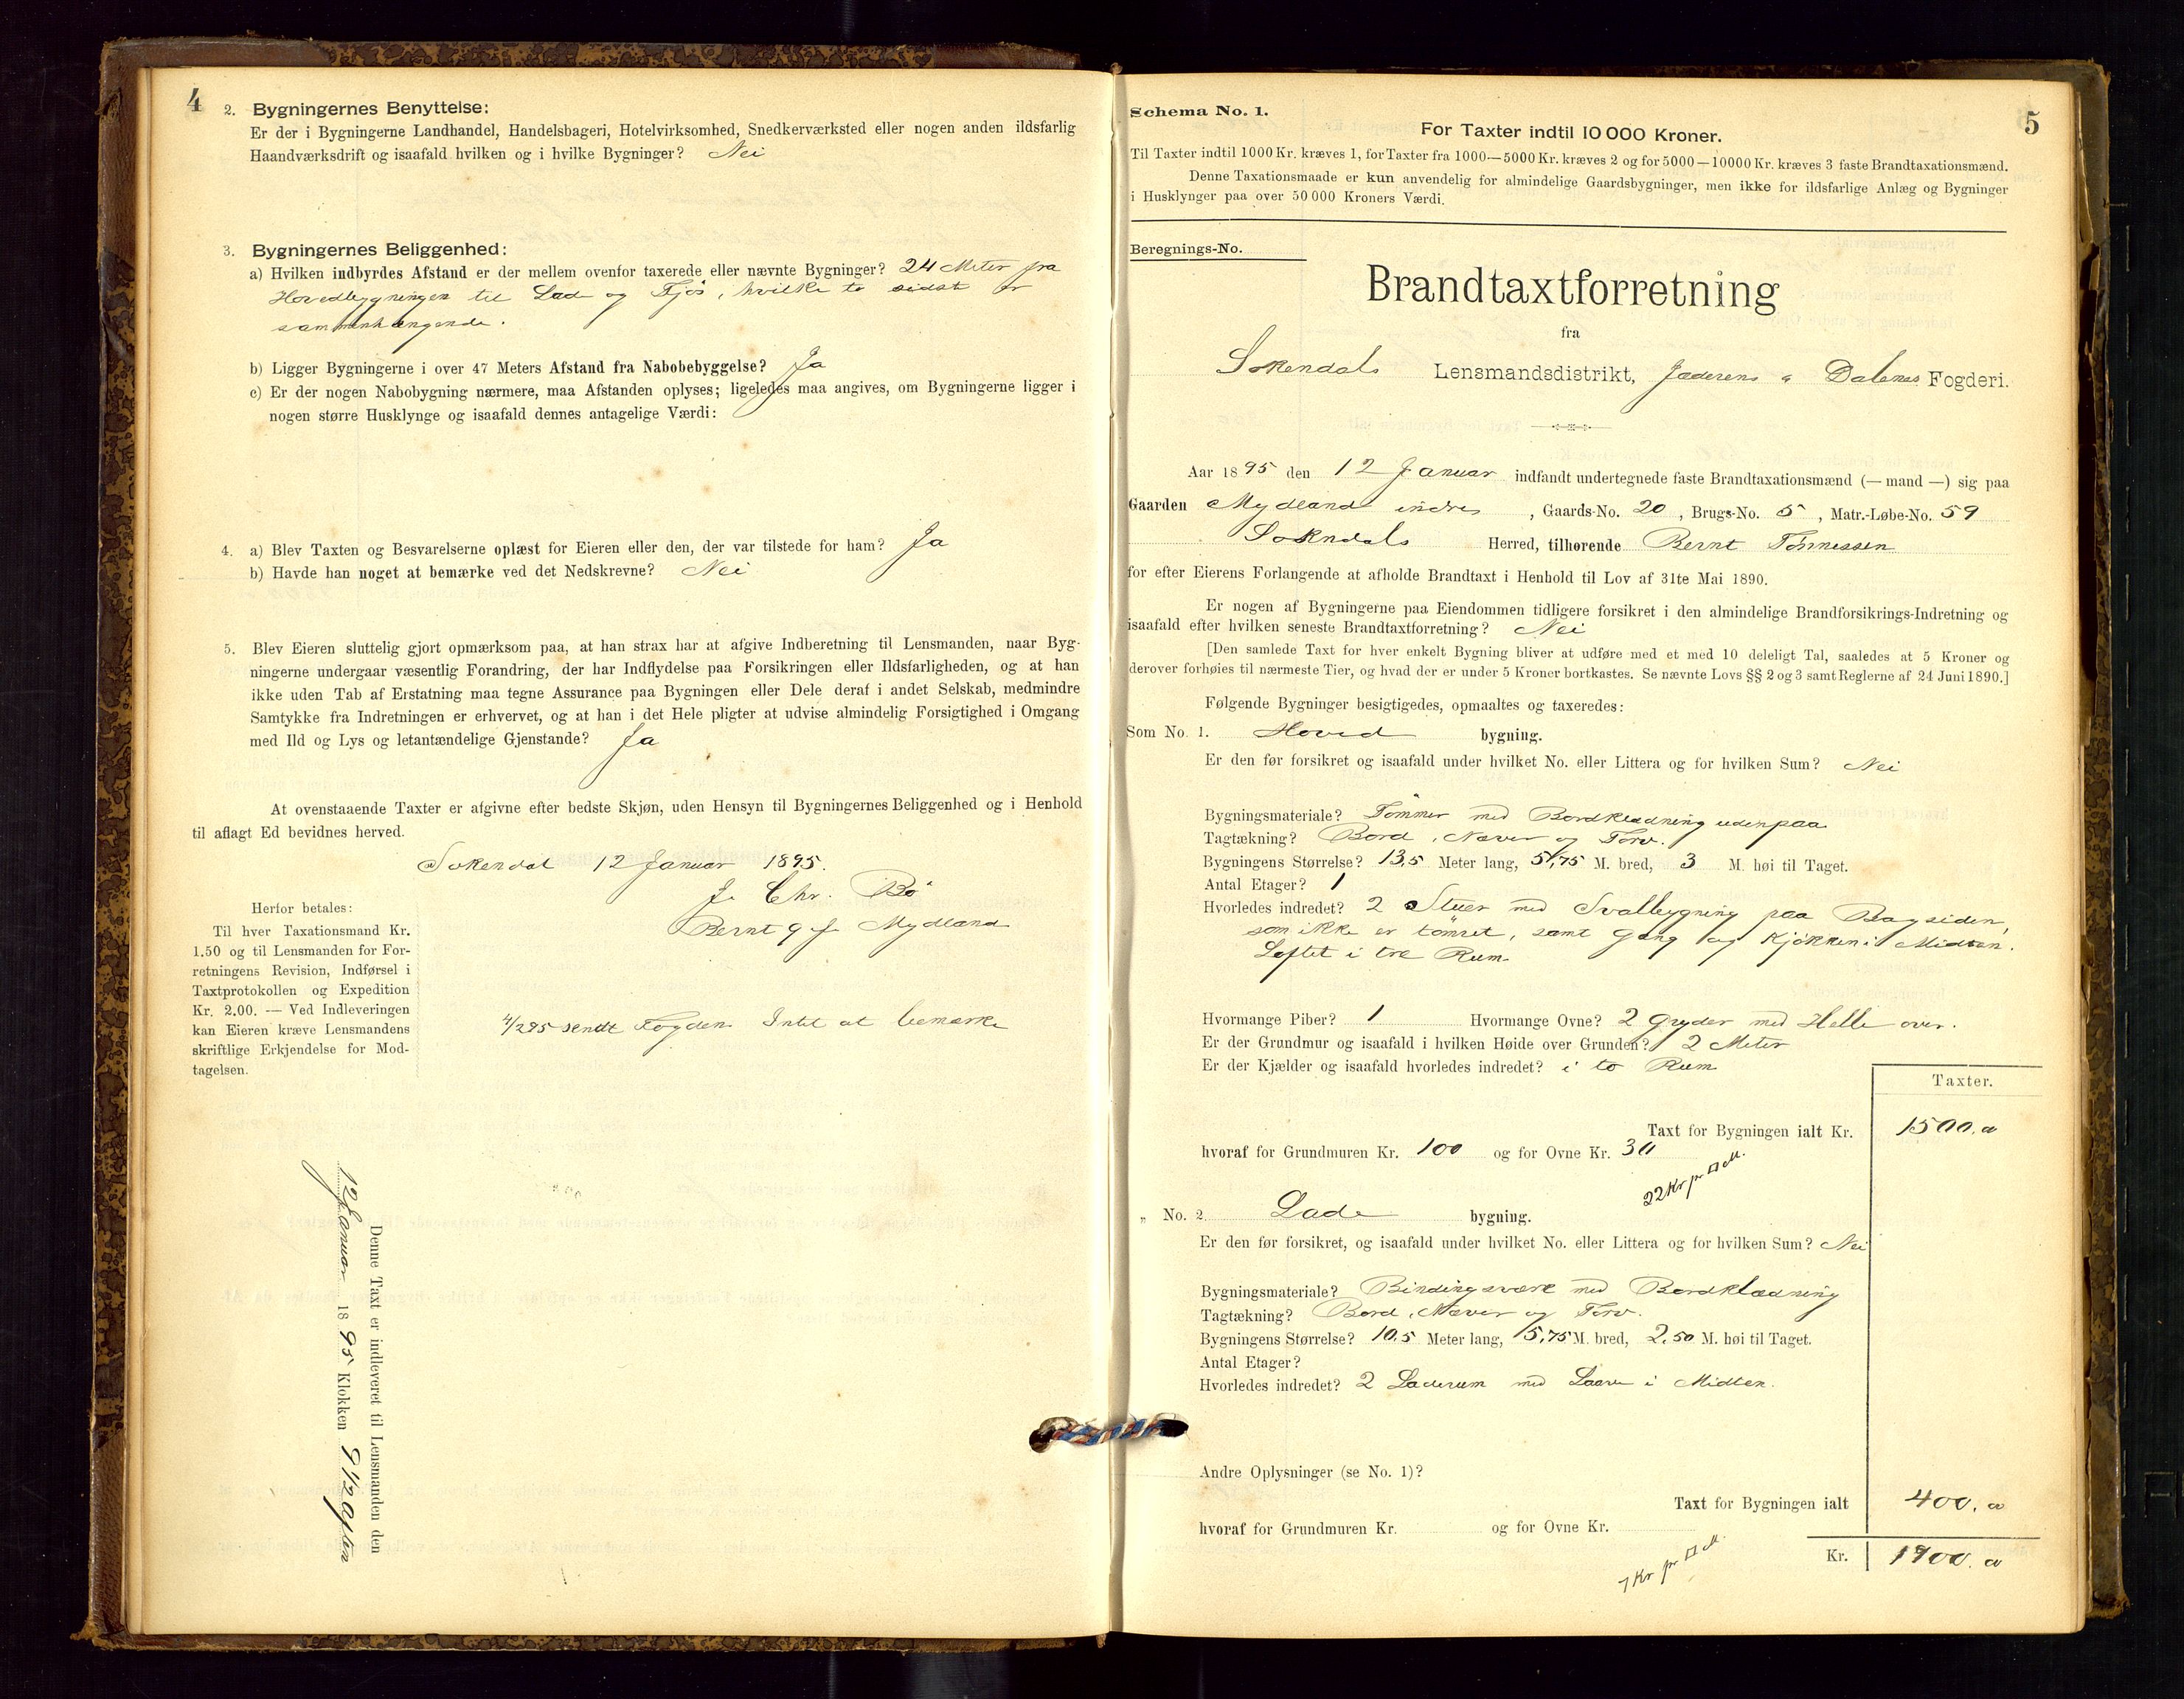 4
2. Bygningernes Benyttelse:
Er der i Bygningerne Landhandel, Handelsbageri, Hotelvirksomhed, Snedkerværksted eller nogen anden ildsfarlig
Haandværksdrift og isaafald hvilken og i hvilke Bygninger? Nei
3. Bygningernes Beliggenhed:
a) Hvilken indbyrdes Afstand er der mellem ovenfor taxerede eller nævnte Bygninger? 24 Meter fra
Hovedbygningen til Lade og Fjøs, hvilke to sidst er
sammenhængende.
b) Ligger Bygningerne i over 47 Meters Afstand fra Nabobebyggelse? Ja
c) Er der nogen Nabobygning nærmere, maa Afstanden oplyses; ligeledes maa angives, om Bygningerne ligger i
nogen større Husklynge og isaafald dennes antagelige Værdi:
4. a) Blev Taxten og Besvarelserne oplæst for Eieren eller den, der var tilstede for ham? Ja
b) Havde han noget at bemærke ved det Nedskrevne? Nei
5. Blev Eieren sluttelig gjort opmærksom paa, at han strax har at afgive Indberetning til Lensmanden, naar Byg-
ningerne undergaar væsentlig Forandring, der har Indflydelse paa Forsikringen eller Ildsfarligheden, og at han
ikke uden Tab af Erstatning maa tegne Assurance paa Bygningen eller Dele deraf i andet Selskab, medmindre
Samtykke fra Indretningen er erhvervet, og at han i det Hele pligter at udvise almindelig Forsigtighed i Omgang
med Ild og Lys og letantændelige Gjenstande? Ja
At ovenstaaende Taxter er afgivne efter bedste Skjøn, uden Hensyn til Bygningernes Beliggenhed og i Henhold
til aflagt Ed bevidnes herved.
Sokendal 12 Januar 1895.
J. Chr. Bö
Bernt G J. Mydland
Herfor betales:
Til hver Taxationsmand Kr.
1.50 og til Lensmanden for For-
retningens Revision, Indførsel i
Taxtprotokollen og Expedition
Kr. 2.00. — Ved Indleveringen
kan Eieren kræve Lensmandens
skriftlige Erkjendelse for Mod-
tagelsen.
4/2 95 sendt Fogden. Intet at bemærke
Denne Taxt er indleveret til Lensmanden den
12 Januar 1895 Klokken 9 1/2 Aften
5
Schema No. 1.
For Taxter indtil 10 000 Kroner.
Til Taxter indtil 1000 Kr. kræves 1, for Taxter fra 1000—5000 Kr. kræves 2 og for 5000—10000 Kr. kræves 3 faste Brandtaxationsmænd.
Denne Taxationsmaade er kun anvendelig for almindelige Gaardsbygninger, men ikke for ildsfarlige Anlæg og Bygninger
i Husklynger paa over 50 000 Kroners Værdi.
Beregnings-No.
Brandtaxtforretning
fra
Sokendals Lensmandsdistrikt, Jæderens & Dalenes Fogderi.
Aar 1895 den 12 Januar indfandt undertegnede faste Brandtaxationsmænd (— mand —) sig paa
Gaarden Mydland indre, Gaards-No. 20, Brugs-No. 5, Matr.-Løbe-No. 59
Sokndals Herred, tilhørende Bernt Tönnessen
for efter Eierens Forlangende at afholde Brandtaxt i Henhold til Lov af 31te Mai 1890.
Er nogen af Bygningerne paa Eiendommen tidligere forsikret i den almindelige Brandforsikrings-Indretning og
isaafald efter hvilken seneste Brandtaxtforretning? Nei
[Den samlede Taxt for hver enkelt Bygning bliver at udføre med et med 10 deleligt Tal, saaledes at 5 Kroner og
derover forhøies til nærmeste Tier, og hvad der er under 5 Kroner bortkastes. Se nævnte Lovs §§ 2 og 3 samt Reglerne af 24 Juni 1890.]
Følgende Bygninger besigtigedes, opmaaltes og taxeredes:
Som No. 1. Hoved bygning.
Er den før forsikret og isaafald under hvilket No. eller Littera og for hvilken Sum? Nei
Bygningsmateriale? Tömmer med Bordklædning udenpaa
Tagtækning? Bord, Næver og Torv.
Bygningens Størrelse? 13,5 Meter lang, 5,75 M. bred, 3 M. høi til Taget.
Antal Etager? 1
Hvorledes indredet? 2 Stuer med Svalbygning paa Bagsiden,
som ikke er tömret, samt Gang og Kjökken i Midten.
Loftet i tre Rum
Hvormange Piber? 1 Hvormange Ovne? 2 Gryder med Helle over.
Er der Grundmur og isaafald i hvilken Høide over Grunden? 2 Meter
Er der Kjælder og isaafald hvorledes indredet? i to Rum
Taxter.
Taxt for Bygningen ialt Kr. 1500.
hvoraf for Grundmuren Kr. 100 og for Ovne Kr. 30
22 Kr pr □ M.
„ No. 2. Lade bygning.
Er den før forsikret, og isaafald under hvilket No. eller Littera og for hvilken Sum? Nei
Bygningsmateriale? Bindingsværk med Bordklædning
Tagtækning? Bord, Næver og Torv.
Bygningens Størrelse? 10,5 Meter lang, 5,75 M. bred, 2,50 M. høi til Taget.
Antal Etager?
Hvorledes indredet? 2 Laderum med Laave i Midten.
Andre Oplysninger (se No. 1)?
Taxt for Bygningen ialt 400.
hvoraf for Grundmuren Kr. og for Ovne Kr.
7 Kr pr □ M.
Kr. 1900.